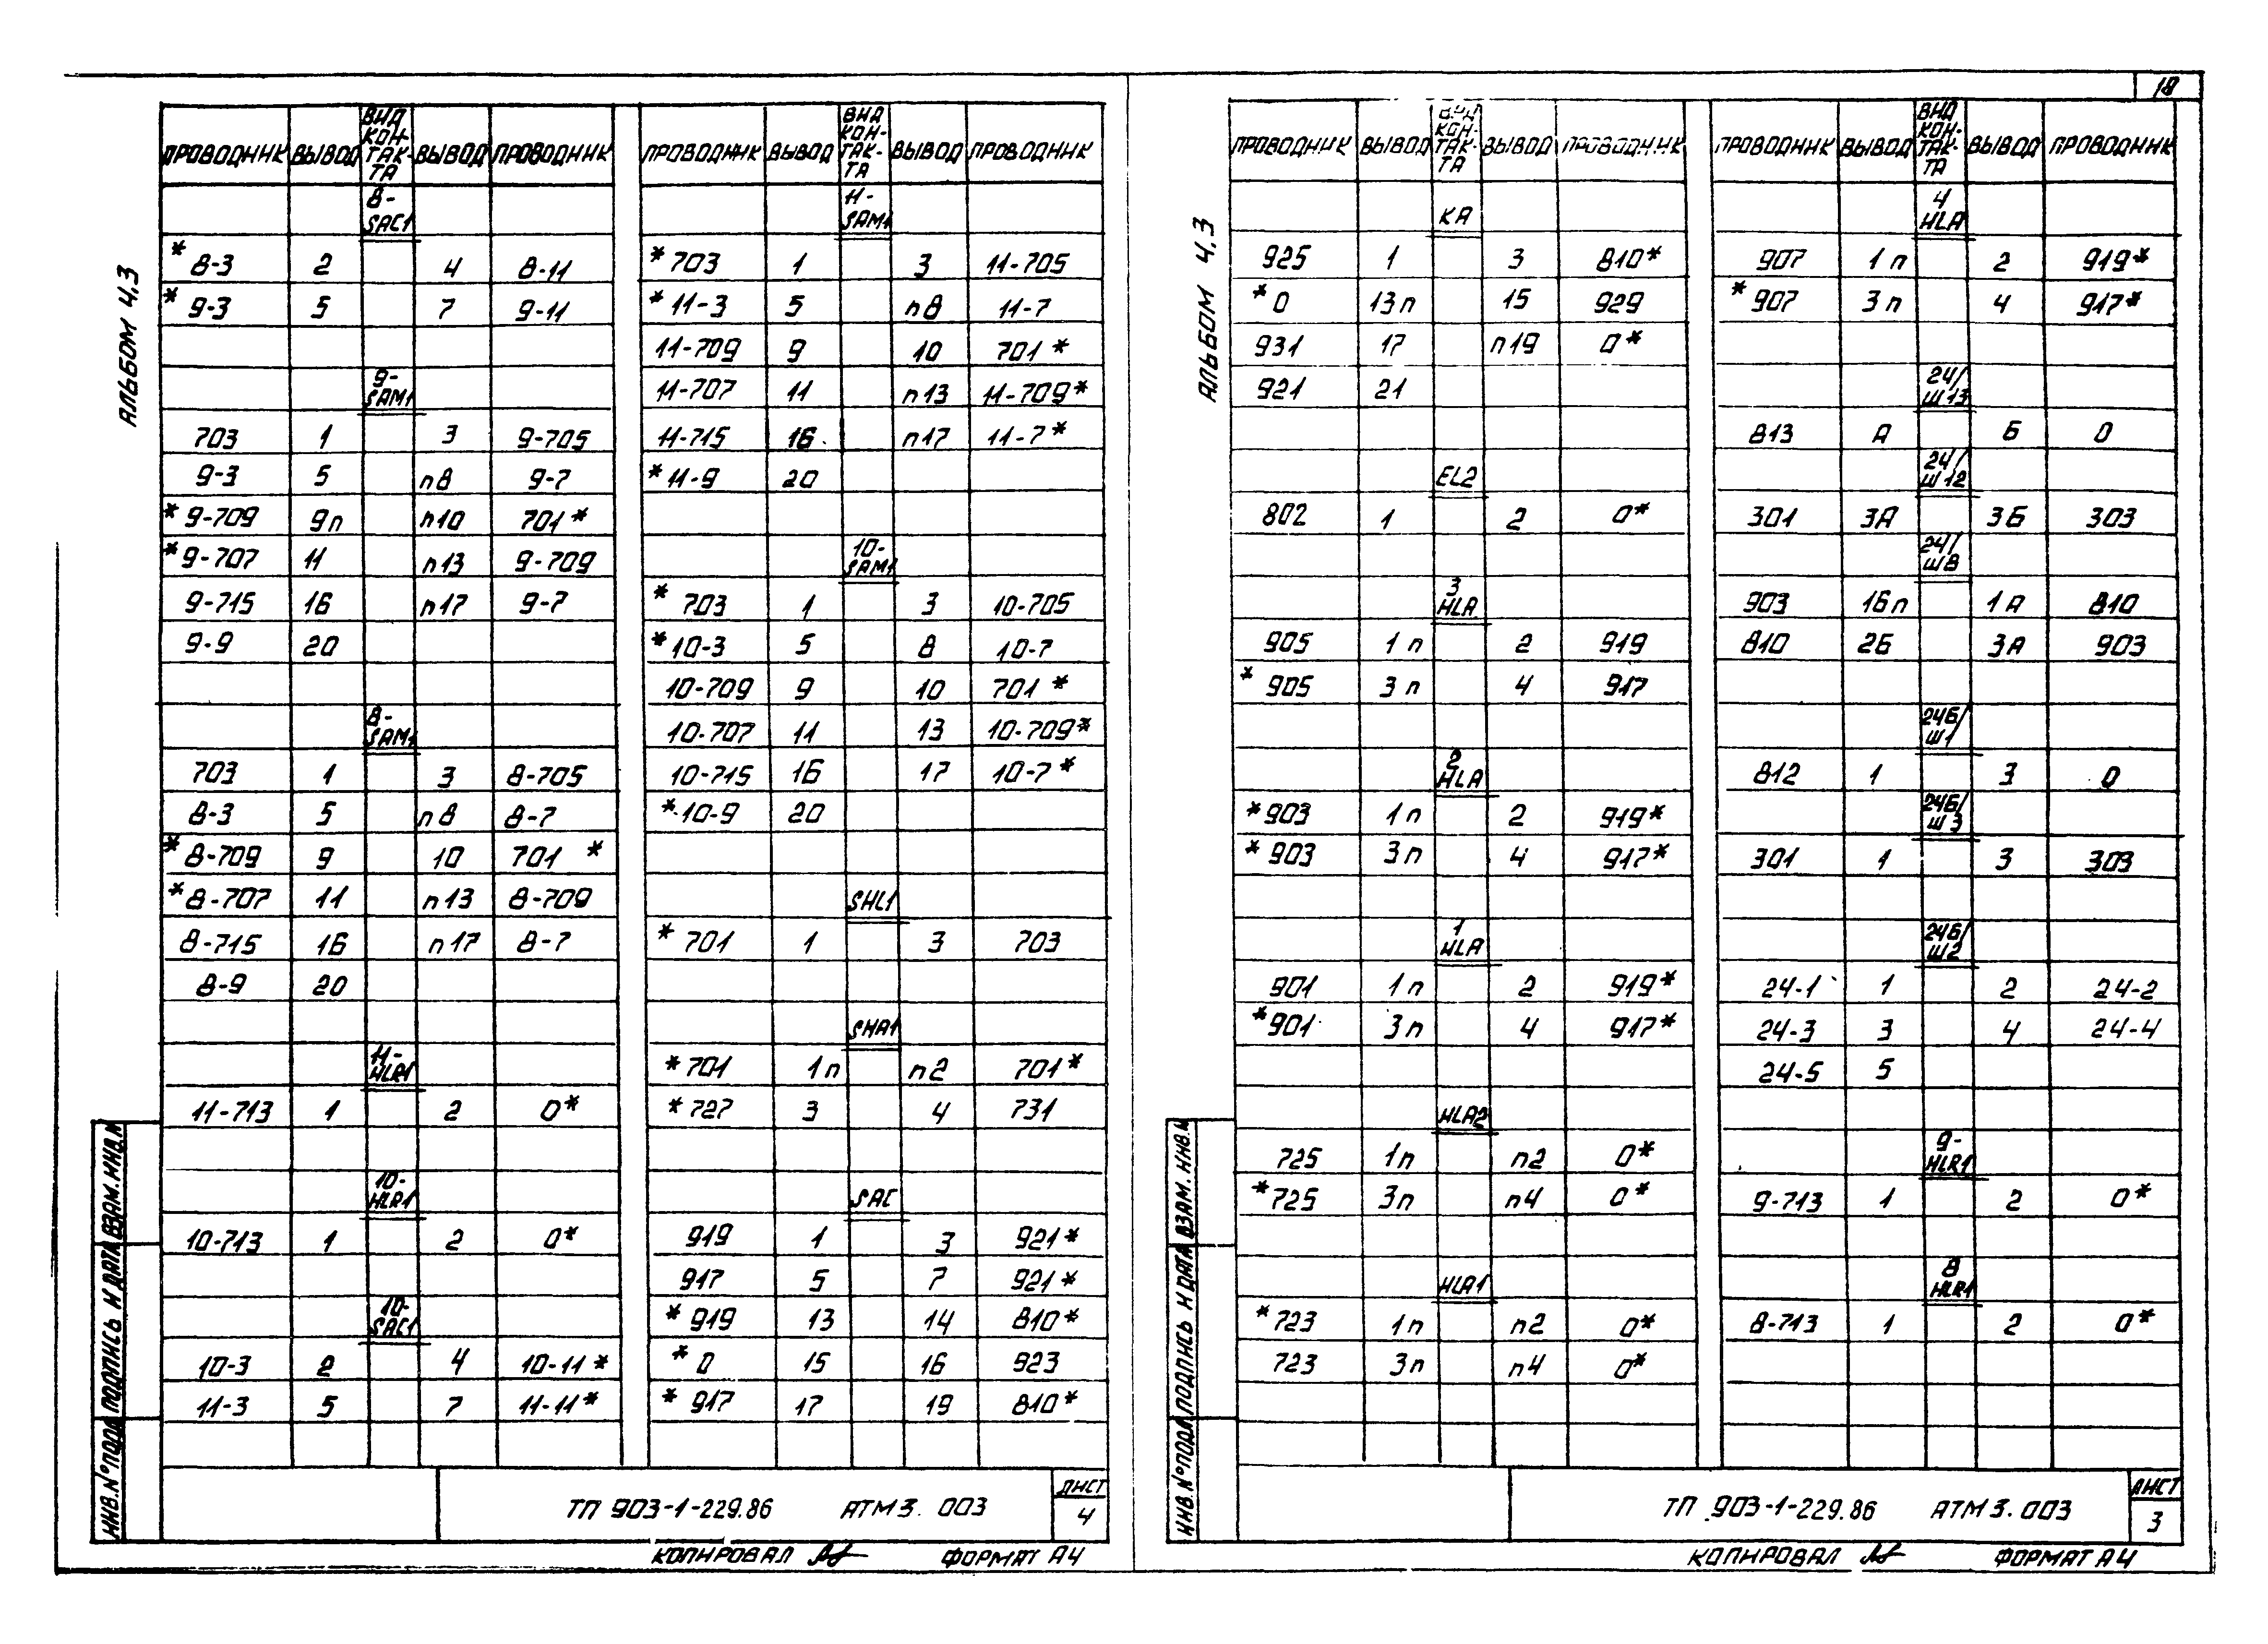 18
АЛЬБОМ 4.3
ПРОВОДНИК ВЫВОД ВИД КОН-ТАК-ТА ВЫВОД ПРОВОДНИК
8-SAC1
*8-3 2 4 8-11
*9-3 5 7 9-11
9-SAM1
703 1 3 9-705
9-3 5 п8 9-7
*9-709 9п п10 701*
*9-707 11 п13 9-709
9-715 16 п17 9-7
9-9 20
8-SAM1
703 1 3 8-705
8-3 5 п8 8-7
*8-709 9 10 701 *
*8-707 11 п13 8-709
8-715 16 п17 8-7
8-9 20
11-HLR1
11-713 1 2 0*
10-HLR1
10-713 1 2 0*
10-SAC1
10-3 2 4 10-11*
11-3 5 7 11-11*
ПРОВОДНИК ВЫВОД ВИД КОН-ТАК-ТА ВЫВОД ПРОВОДНИК
11-SAM1
*703 1 3 11-705
*11-3 5 п8 11-7
11-709 9 10 701*
11-707 11 п13 11-709*
11-715 16 п17 11-7*
*11-9 20
10-SAM1
*703 1 3 10-705
*10-3 5 8 10-7
10-709 9 10 701*
10-707 11 13 10-709*
10-715 16 17 10-7*
*10-9 20
SHL1
*701 1 3 703
SHA1
*701 1п п2 701*
*727 3 4 731
SAC
919 1 3 921*
917 5 7 921*
*919 13 14 810*
*0 15 16 923
*917 17 19 810*
ИНВ.№ПОДЛ ПОДПИСЬ И ДАТА ВЗАМ.ИНВ.№
ТП 903-1-229.86 АТМ3.003
ЛИСТ
4
КОПИРОВАЛ ФОРМАТ А4
АЛЬБОМ 4.3
ПРОВОДНИК ВЫВОД ВИД КОН-ТАК-ТА ВЫВОД ПРОВОДНИК
КА
925 1 3 810*
*0 13п 15 929
931 17 п19 0*
921 21
EL2
802 1 2 0*
3 HLA
905 1п 2 919
*905 3п 4 917
2 HLA
*903 1п 2 919*
*903 3п 4 917*
1 HLA
901 1п 2 919*
*901 3п 4 917*
HLA2
725 1п п2 0*
*725 3п п4 0*
HLA1
*723 1п п2 0*
723 3п п4 0*
ПРОВОДНИК ВЫВОД ВИД КОН-ТАК-ТА ВЫВОД ПРОВОДНИК
4 HLA
907 1п 2 919*
*907 3п 4 917*
24/Ш13
813 А Б 0
24/Ш12
301 3А 3Б 303
24/Ш8
903 1Бп 1А 810
810 2Б 3А 903
24Б/Ш1
812 1 3 0
24Б/Ш3
301 1 3 303
24Б/Ш2
24-1 1 2 24-2
24-3 3 4 24-4
24-5 5
9-HLR1
9-713 1 2 0*
8 HLR1
8-713 1 2 0*
ИНВ.№ПОДЛ ПОДПИСЬ И ДАТА ВЗАМ.ИНВ.№
ТП 903-1-229.86 АТМ3.003
ЛИСТ
3
КОПИРОВАЛ ФОРМАТ А4